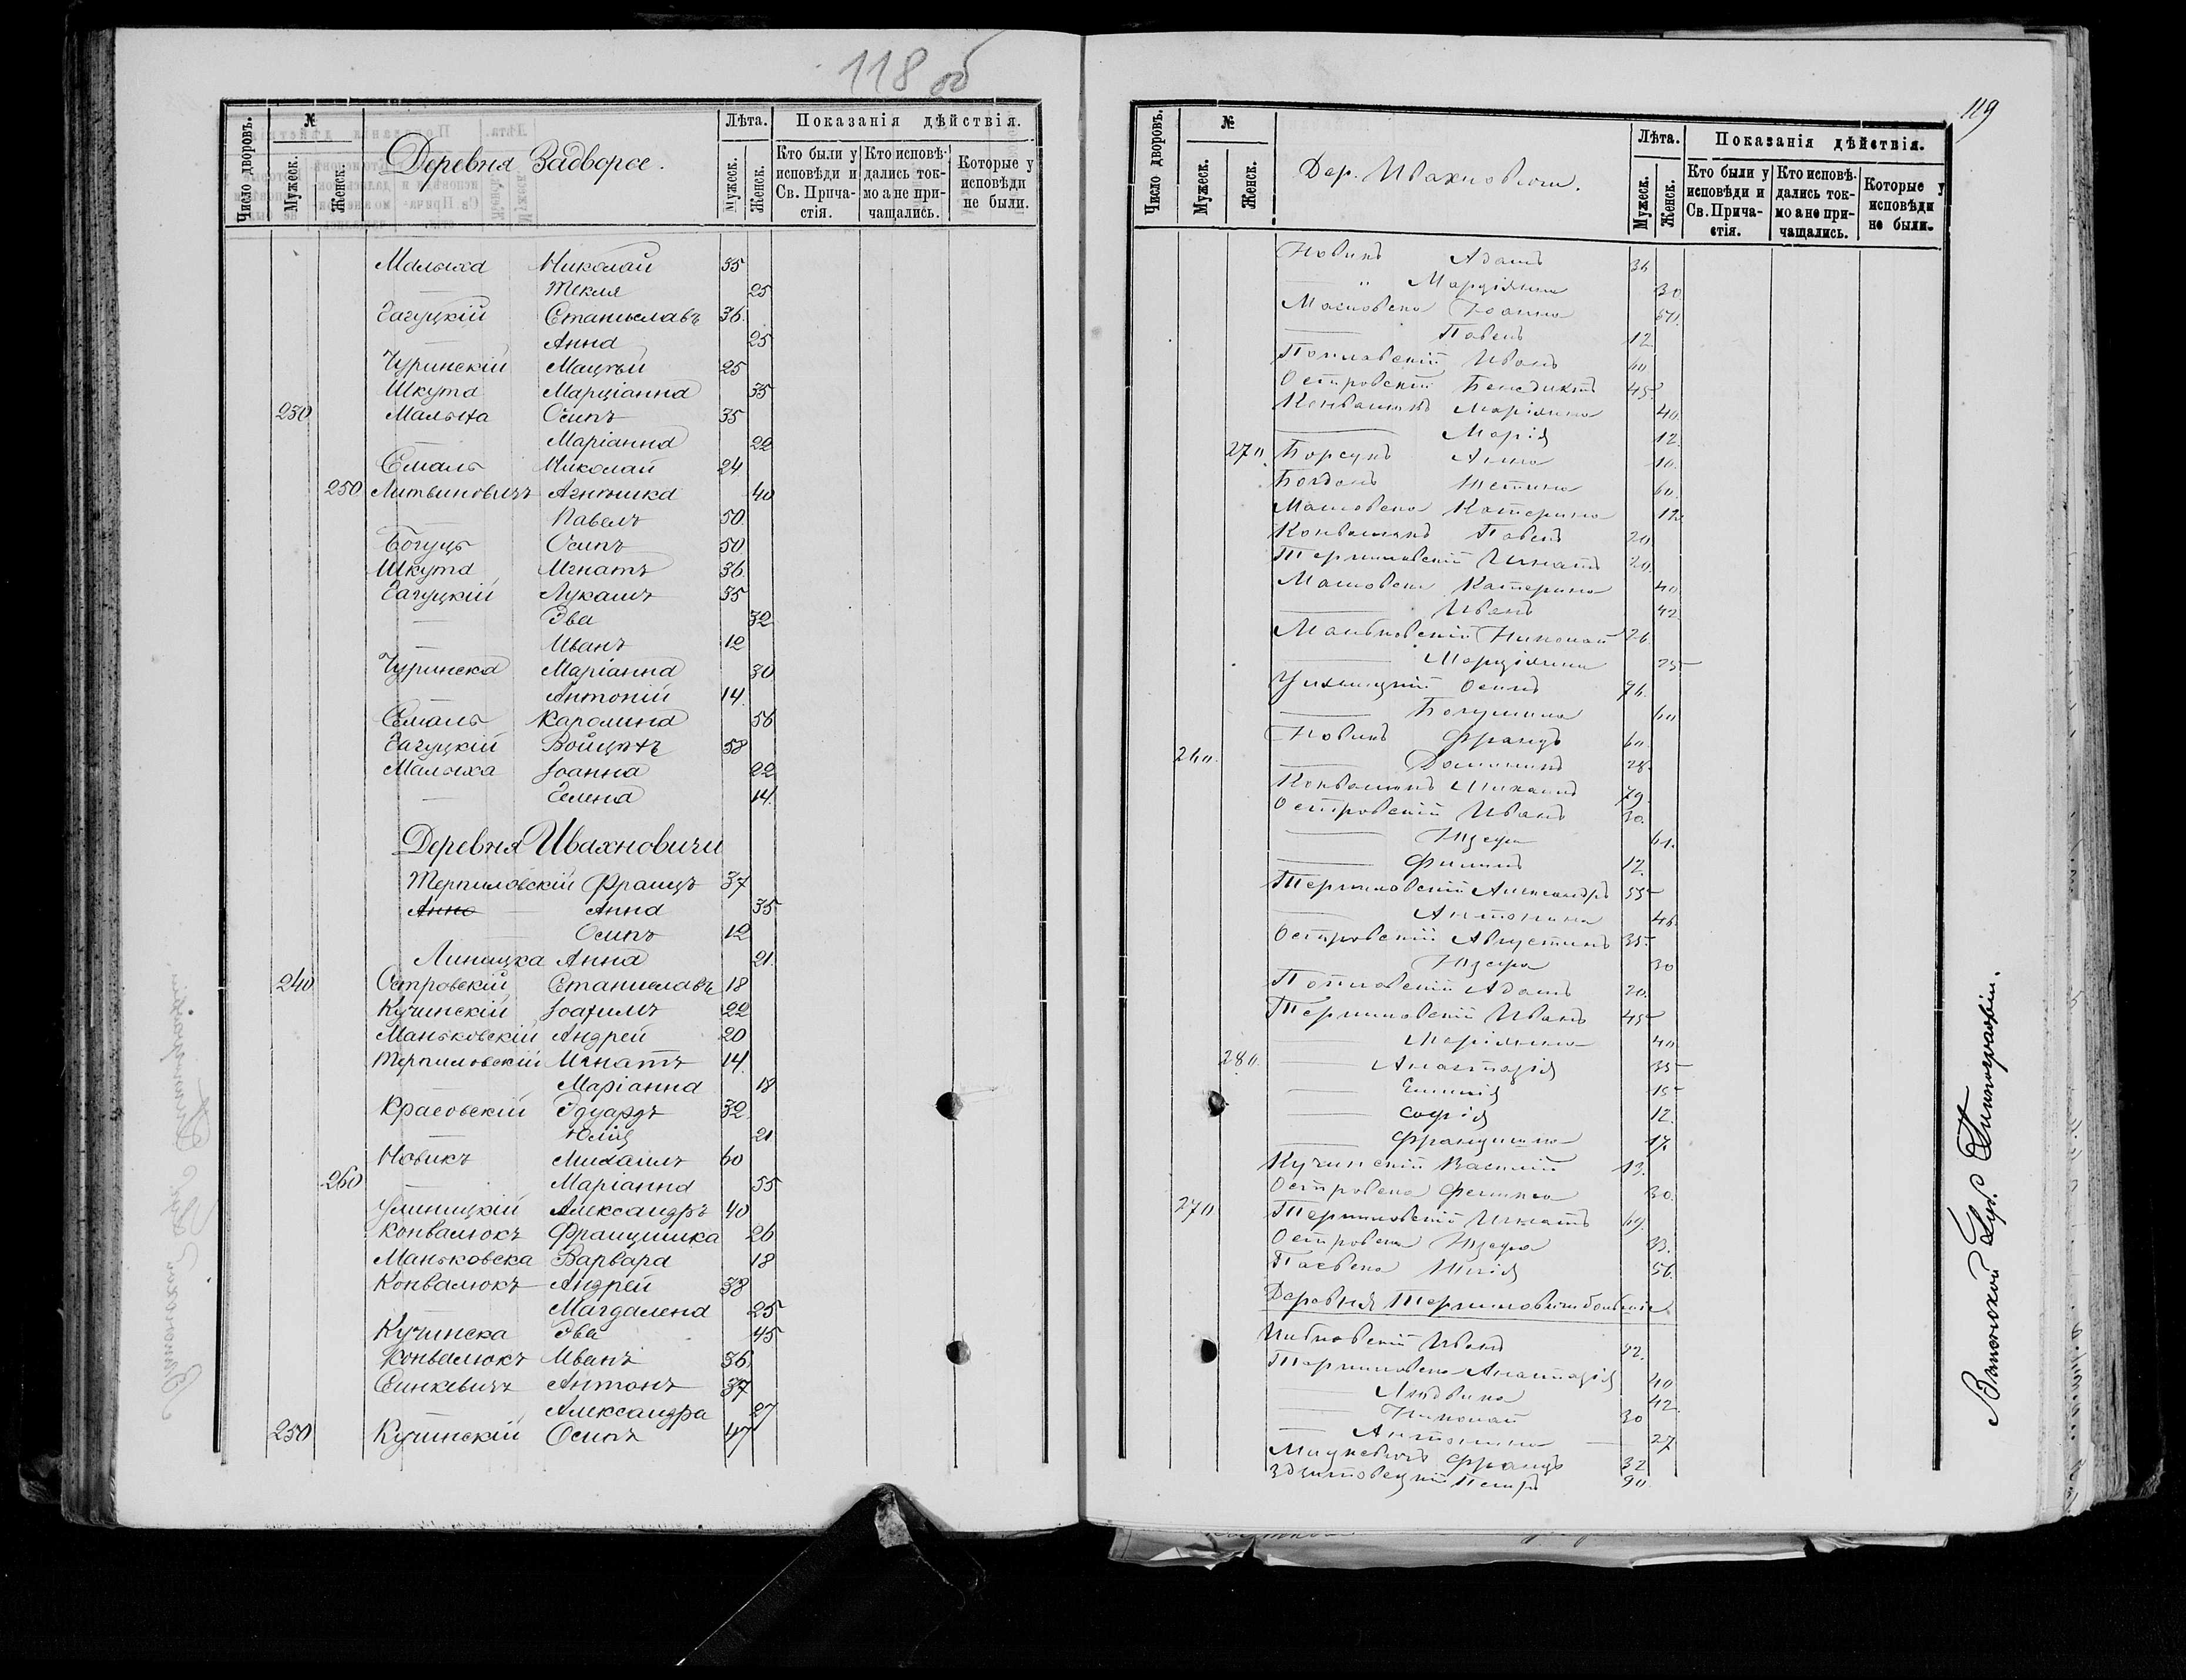 118 об
Число дворовъ.
№
Мужеск.
Женск.
Деревня Задворее.
Лѣта.
Мужеск.
Женск.
Показанія дѣйствія.
Кто были у исповѣди и Св. Причастія.
Кто исповѣдались токмо а не причащались.
Которые у исповѣди не были.
Малыха Николай 35
— Текля 25
Гагуцкій Станиславъ 36.
— Анна 25
Чуринскій Мацѣй 25
Шкута Марціанна 35
250 Малыха Осипъ 35
— Маріанна 22
Смаль Николай 24
250 Литвиновичъ Агнѣшка 40
— Павелъ 50.
Богуць Осипъ 50
Шкута Игнатъ 36.
Гагуцкій Лукашъ 35
— Эва 32
— Иванъ 12
Чуринска Маріанна 30
— Антоній 14.
Смаль Каролина 56
Гагуцкій Войцѣхъ 58
Малыха Іоанна 22
— Гелена 14.
Деревня Ивахновичи
Терпиловскій Францъ 37
Анно — Анна 35
— Осипъ 12
Линицка Анна 21.
240 Островскій Станиславъ 18
Кучинскій Іоахимъ 22
Маньковскій Андрей 20
Терпиловскій Игнатъ 14.
— Маріанна 18
Красовскій Эдуардъ 32
— Юлія 21
Новикъ Михаилъ 60
260 — Маріанна 55
Улиницкій Александръ 40
Конвалюкъ Францишка 26
Маньковска Варвара 18
Конвалюкъ Андрей 38
— Магдалена 25
Кучинска Эва 45
Конвалюкъ Иванъ 36.
Синкевичъ Антонъ 37
— Александра 27
250 Кучинскій Осипъ 47
119
Число дворовъ.
№
Мужеск.
Женск.
Дер. Ивахновичи.
Лѣта.
Мужеск.
Женск.
Показанія дѣйствія.
Кто были у исповѣди и Св. Причастія.
Кто исповѣдались токмо а не причащались.
Которые у исповѣди не были.
Новикъ Адамъ 36
— " Марціянна 30
Іоанна
— Павелъ 12
Поплавскій Иванъ 60
Островскій Бенедиктъ 45
Конвалюкъ Маріянна 40.
— Марія 12.
270. Борсукъ Анна 10.
Богданъ 60.
Катерина 12
Конвалюкъ Павелъ 20
Терпиловскій Игнатъ 20.
Катерина 40
— Иванъ 42
Маньковскій Николай 26.
— Марціянна 25
Осипъ 76.
— Богумила 60
Новикъ Францъ 60
260. — Доминикъ 28.
Конвалюкъ Михаилъ 79.
Островскій Иванъ 30.
— Юзефа 61.
— Филипъ 12.
Терпиловскій Александръ 55
— Антонина 46.
Островскій Августинъ 35
Юзефа 30
Поплавскій Адамъ 20.
Терпиловскій Иванъ 45
— Маріянна 40
280. — Анастазія 35
— Емилія 15
— Софія 12.
— Францишка 17.
Кучинскій Василій 13.
Островска 30.
270. Терпиловскій Игнатъ 69.
Островска Юзефа 33.
56.
Деревня Терпиловичи
Иванъ 42.
Терпиловска Анастазія 40
— Людвика 42.
— Николай 30
— Антонина — 27
Мицкевичъ Францъ 32
Петръ 90
Виленской Губ. Типографіи.